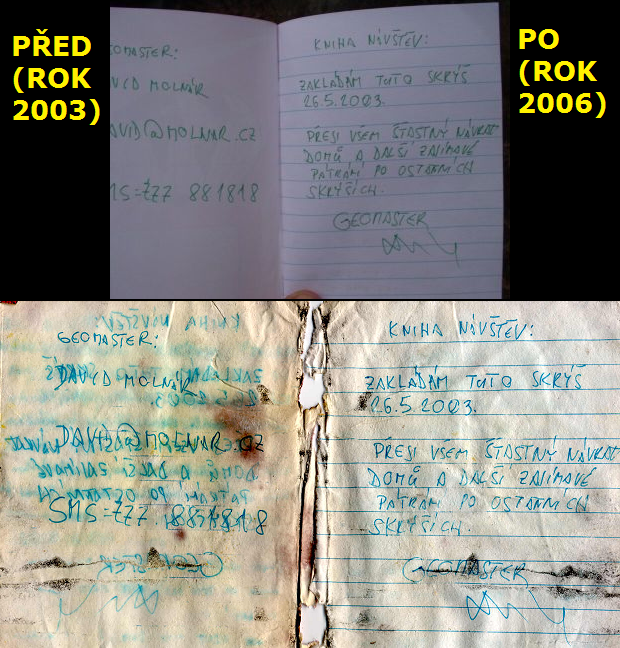 PŘED
(ROK
2003)
EOMASTER:
VID MOLNÁR
AVID@MOLNAR.CZ
MS=777 881818
KNIHA NÁVŠTĚV:
ZAKLÁDÁM TUTO SKRÝŠ
26.5.2003.
PŘEJI VŠEM ŠŤASTNÝ NÁVRAT
DOMŮ A DALŠÍ ZAJÍMAVÉ
PÁTRÁNÍ PO OSTATNÍCH
SKRÝŠÍCH.
GEOMASTER
PO
(ROK
2006)
GEOMASTER:
DAVID MOLNÁR
DAVID@MOLNAR.CZ
SMS=777 881818
KNIHA NÁVŠTĚV:
ZAKLÁDÁM TUTO SKRÝŠ
26.5.2003.
PŘEJI VŠEM ŠŤASTNÝ NÁVRAT
DOMŮ A DALŠÍ ZAJÍMAVÉ
PÁTRÁNÍ PO OSTATNÍCH
SKRÝŠÍCH.
GEOMASTER